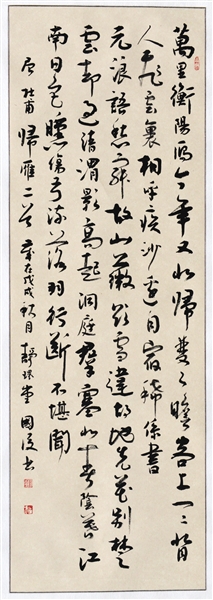 萬里衡陽鴈今年又北歸雙々瞻客上一一背
人飛雲裏相呼疾沙邊自宿稀係書
元浪語愁寂故山薇欲雪違胡地先花別楚
雲却過清渭影高起洞庭群塞北春陰暮江
南日色曛傷弓流落羽行斷不堪聞
唐杜甫歸雁二首歲在戊戌秋月國俊書